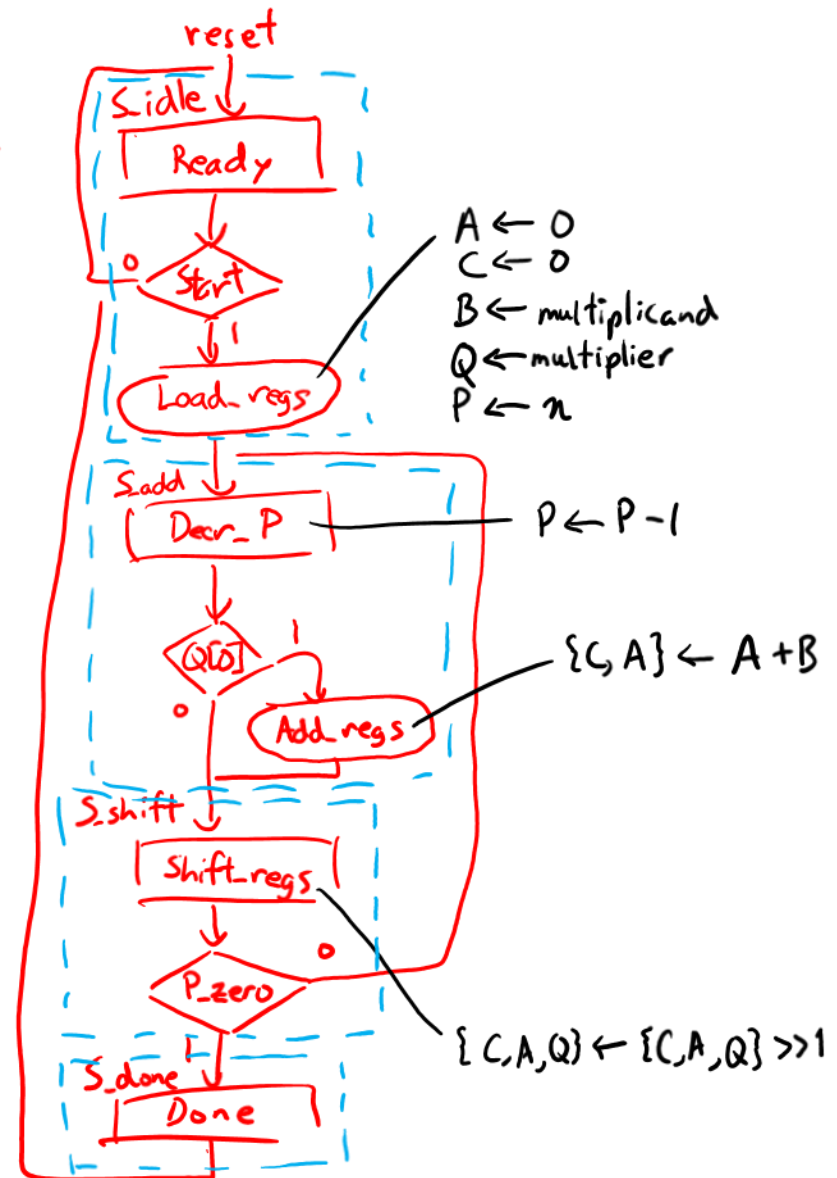 reset
S_idle
Ready
0
Start
1
Load_regs
A ← 0
C ← 0
B ← multiplicand
Q ← multiplier
P ← n
S_add
Decr_P
P ← P - 1
Q[0]
1
0
Add_regs
{C, A} ← A + B
S_shift
Shift_regs
P_zero
0
1
{C,A,Q} ← {C,A,Q} >> 1
S_done
Done